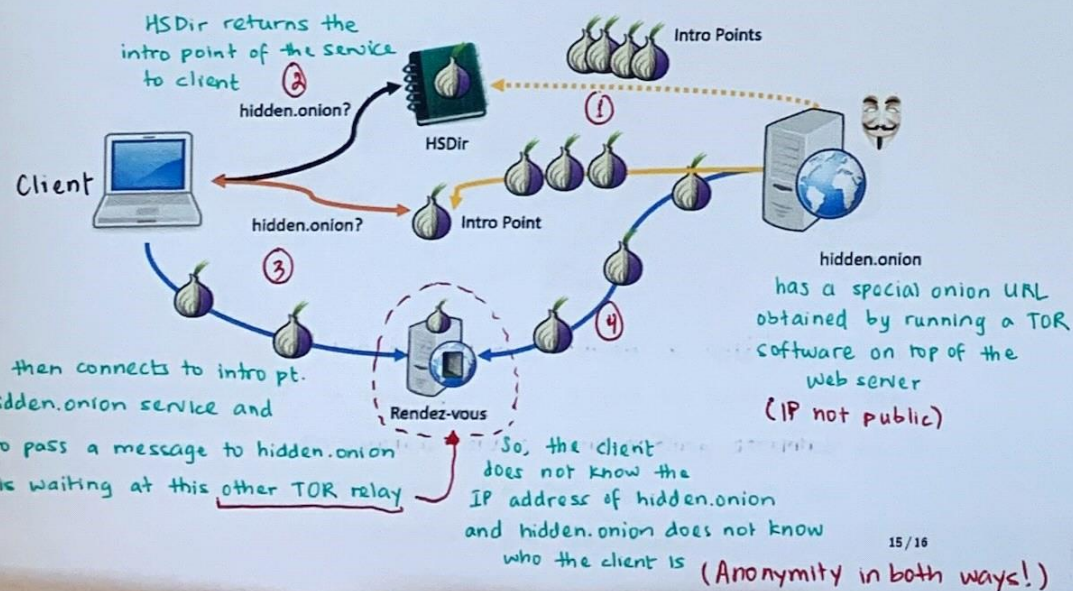 HSDir returns the
intro point of the service
to client
②
hidden.onion?
Intro Points
①
HSDir
Client
hidden.onion?
Intro Point
③
hidden.onion
④
has a special onion URL
obtained by running a TOR
software on top of the
web server
(IP not public)
Rendez-vous
then connects to intro pt.
hidden.onion service and
pass a message to hidden.onion
waiting at this other TOR relay
So, the client
does not know the
IP address of hidden.onion
and hidden.onion does not know
who the client is
(Anonymity in both ways!)
15/16